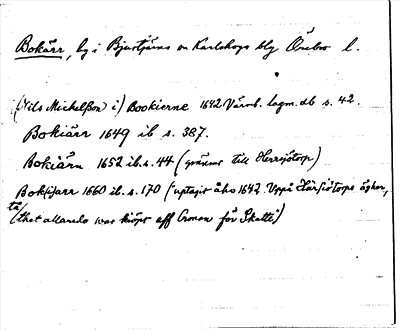 Bokärr, by i Bjurtjärns sn Karlskoga bsg Örebro l.
(Nils Michelsson i) Bookierne 1642 Värml. lagm. db s. 42.
Bokiärr 1649 ib s. 387.
Bokiärn 1652 ib. s. 44 (gränsar till Herrsjötorp)
Bok(i)ärr 1660 ib. s. 170 (uptagit åhr 1642 Uppå Härsiötorps äghor,
(thet allaredo war kiöpt aff Cronan för Skatte)